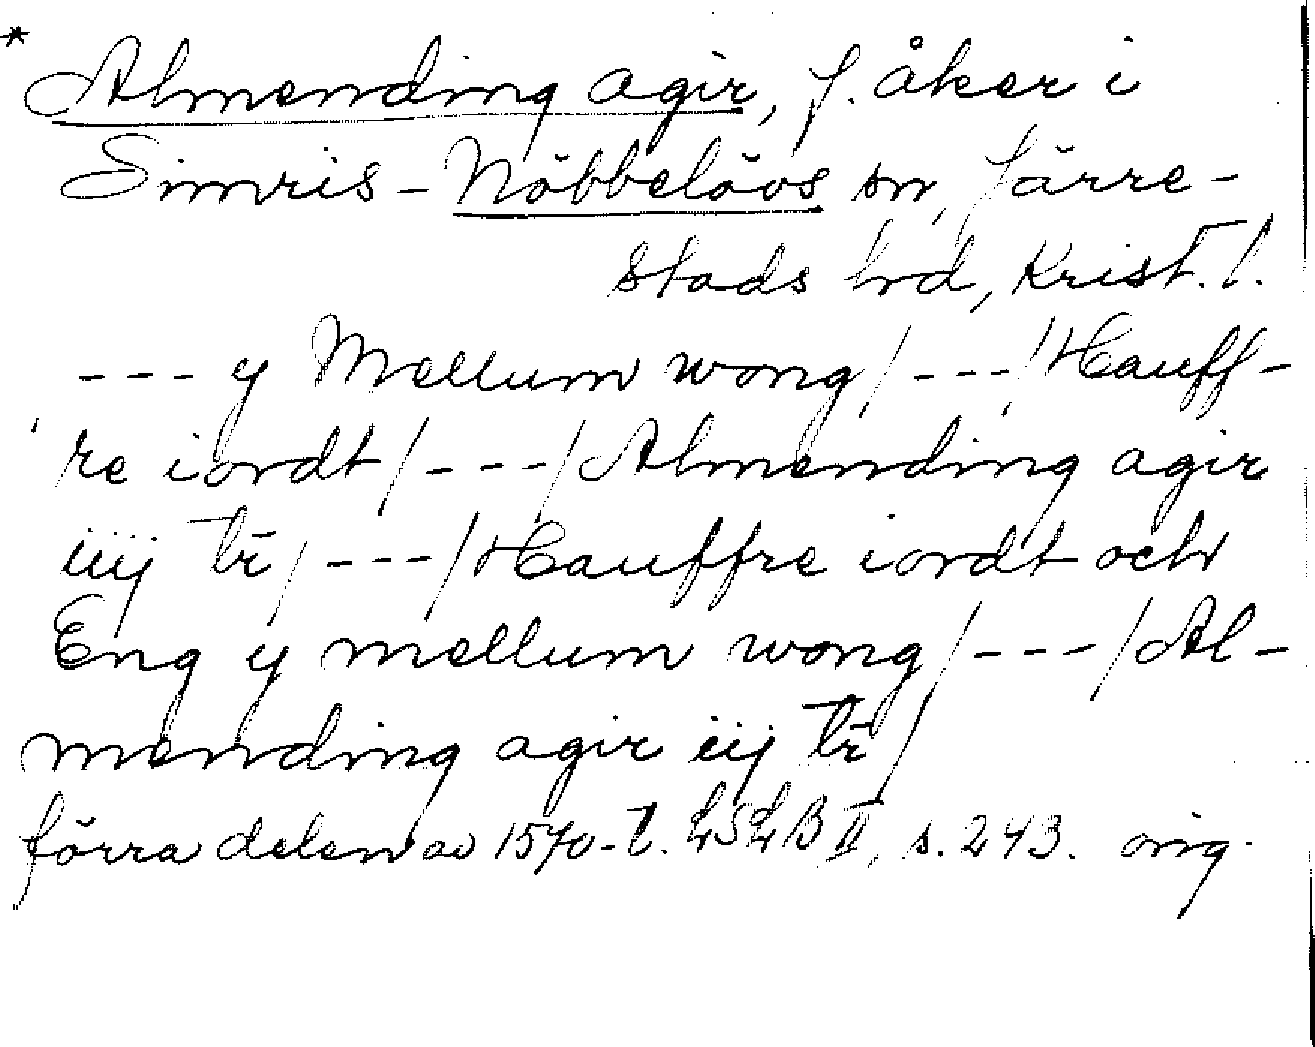 * Almending agir, f. åker i
Simris-Nöbbelövs sn, Järre-
stads hd, Krist. l.
--- y Mellum wong/---/Hauff-
re iordt/---/Almending agir
iiij tr̄/---/Hauffre iordt och
Eng y mellum wong/---/Al-
mending agir iij tr̄/
förra delen av 1570-t. LSLB II, s. 243. orig.